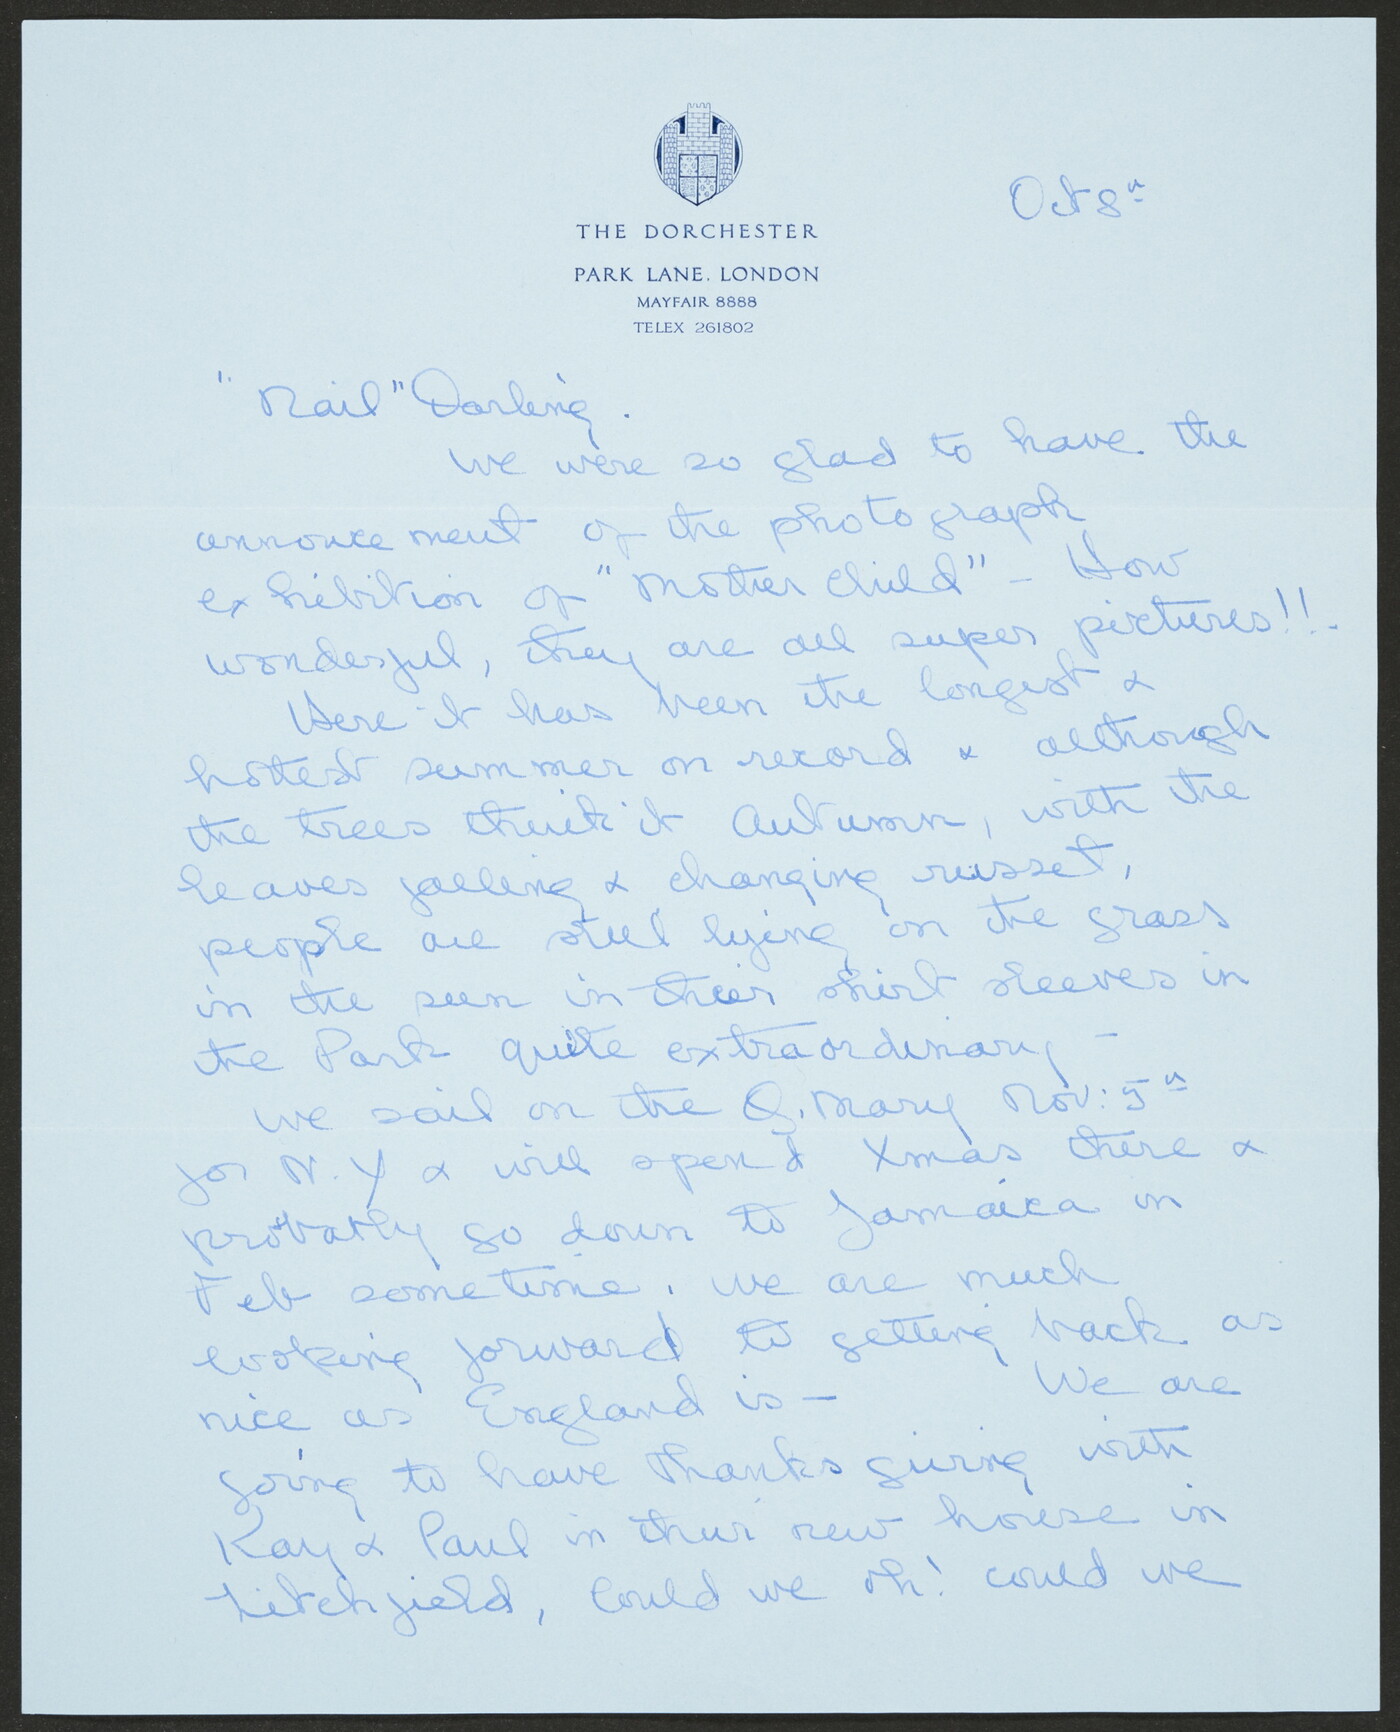 THE DORCHESTER
PARK LANE. LONDON
MAYFAIR 8888
TELEX 261802
Oct 8th
"Nail" Darling.
We were so glad to have the
annoucement of the photograph
exhibition of "Mother Child" - How
wonderful, they are all super pictures!!-
Here it has been the longest &
hottest summer on record & although
the trees think it Autumn, with the
leaves falling & changing russet,
people are still lying on the grass
in the sun in their shirt sleeves in
the Park quite extraordinary -
We sail on the Q. Mary Nov: 5th
for N.Y & will spend Xmas there &
probably go down to Jamaica in
Feb sometime. We are much
looking forward to getting back as
nice as England is - We are
going to have Thanksgiving with
Kay & Paul in their new house in
Litchfield, Could we oh! could we